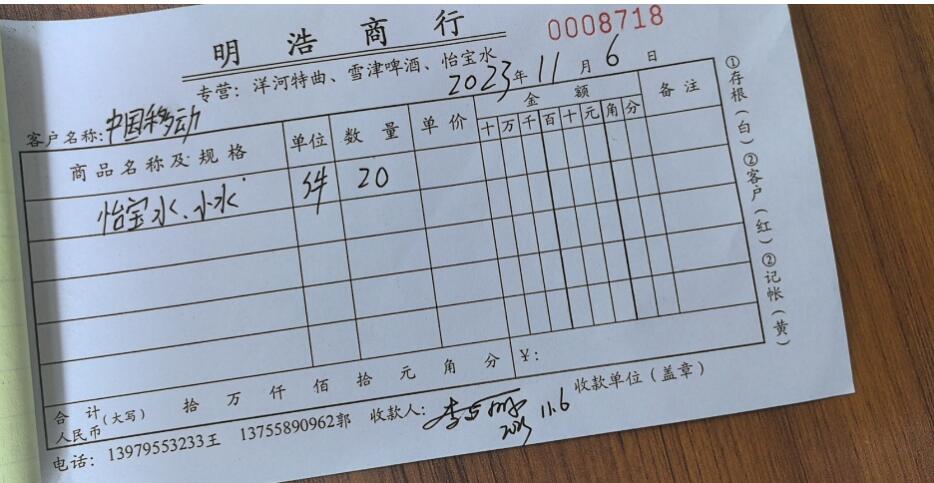 明浩商行
0008718
专营：洋河特曲、雪津啤酒、怡宝水
2023年11月6日
客户名称：中国移动
商品名称及规格 单位 数量 单价 金额 备注
十万千百十元角分
怡宝水、小水 件 20
合计人民币（大写） 拾 万 仟 佰 拾 元 角 分 ¥：
电话：13979553233王 13755890962郭 收款人： 收款单位（盖章）
2023 11.6
①存根（白）②客户（红）②记帐（黄）